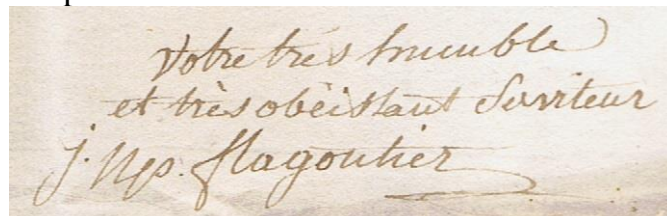 Votre très humble
et très obéissant Serviteur
j. Np. flagoutier